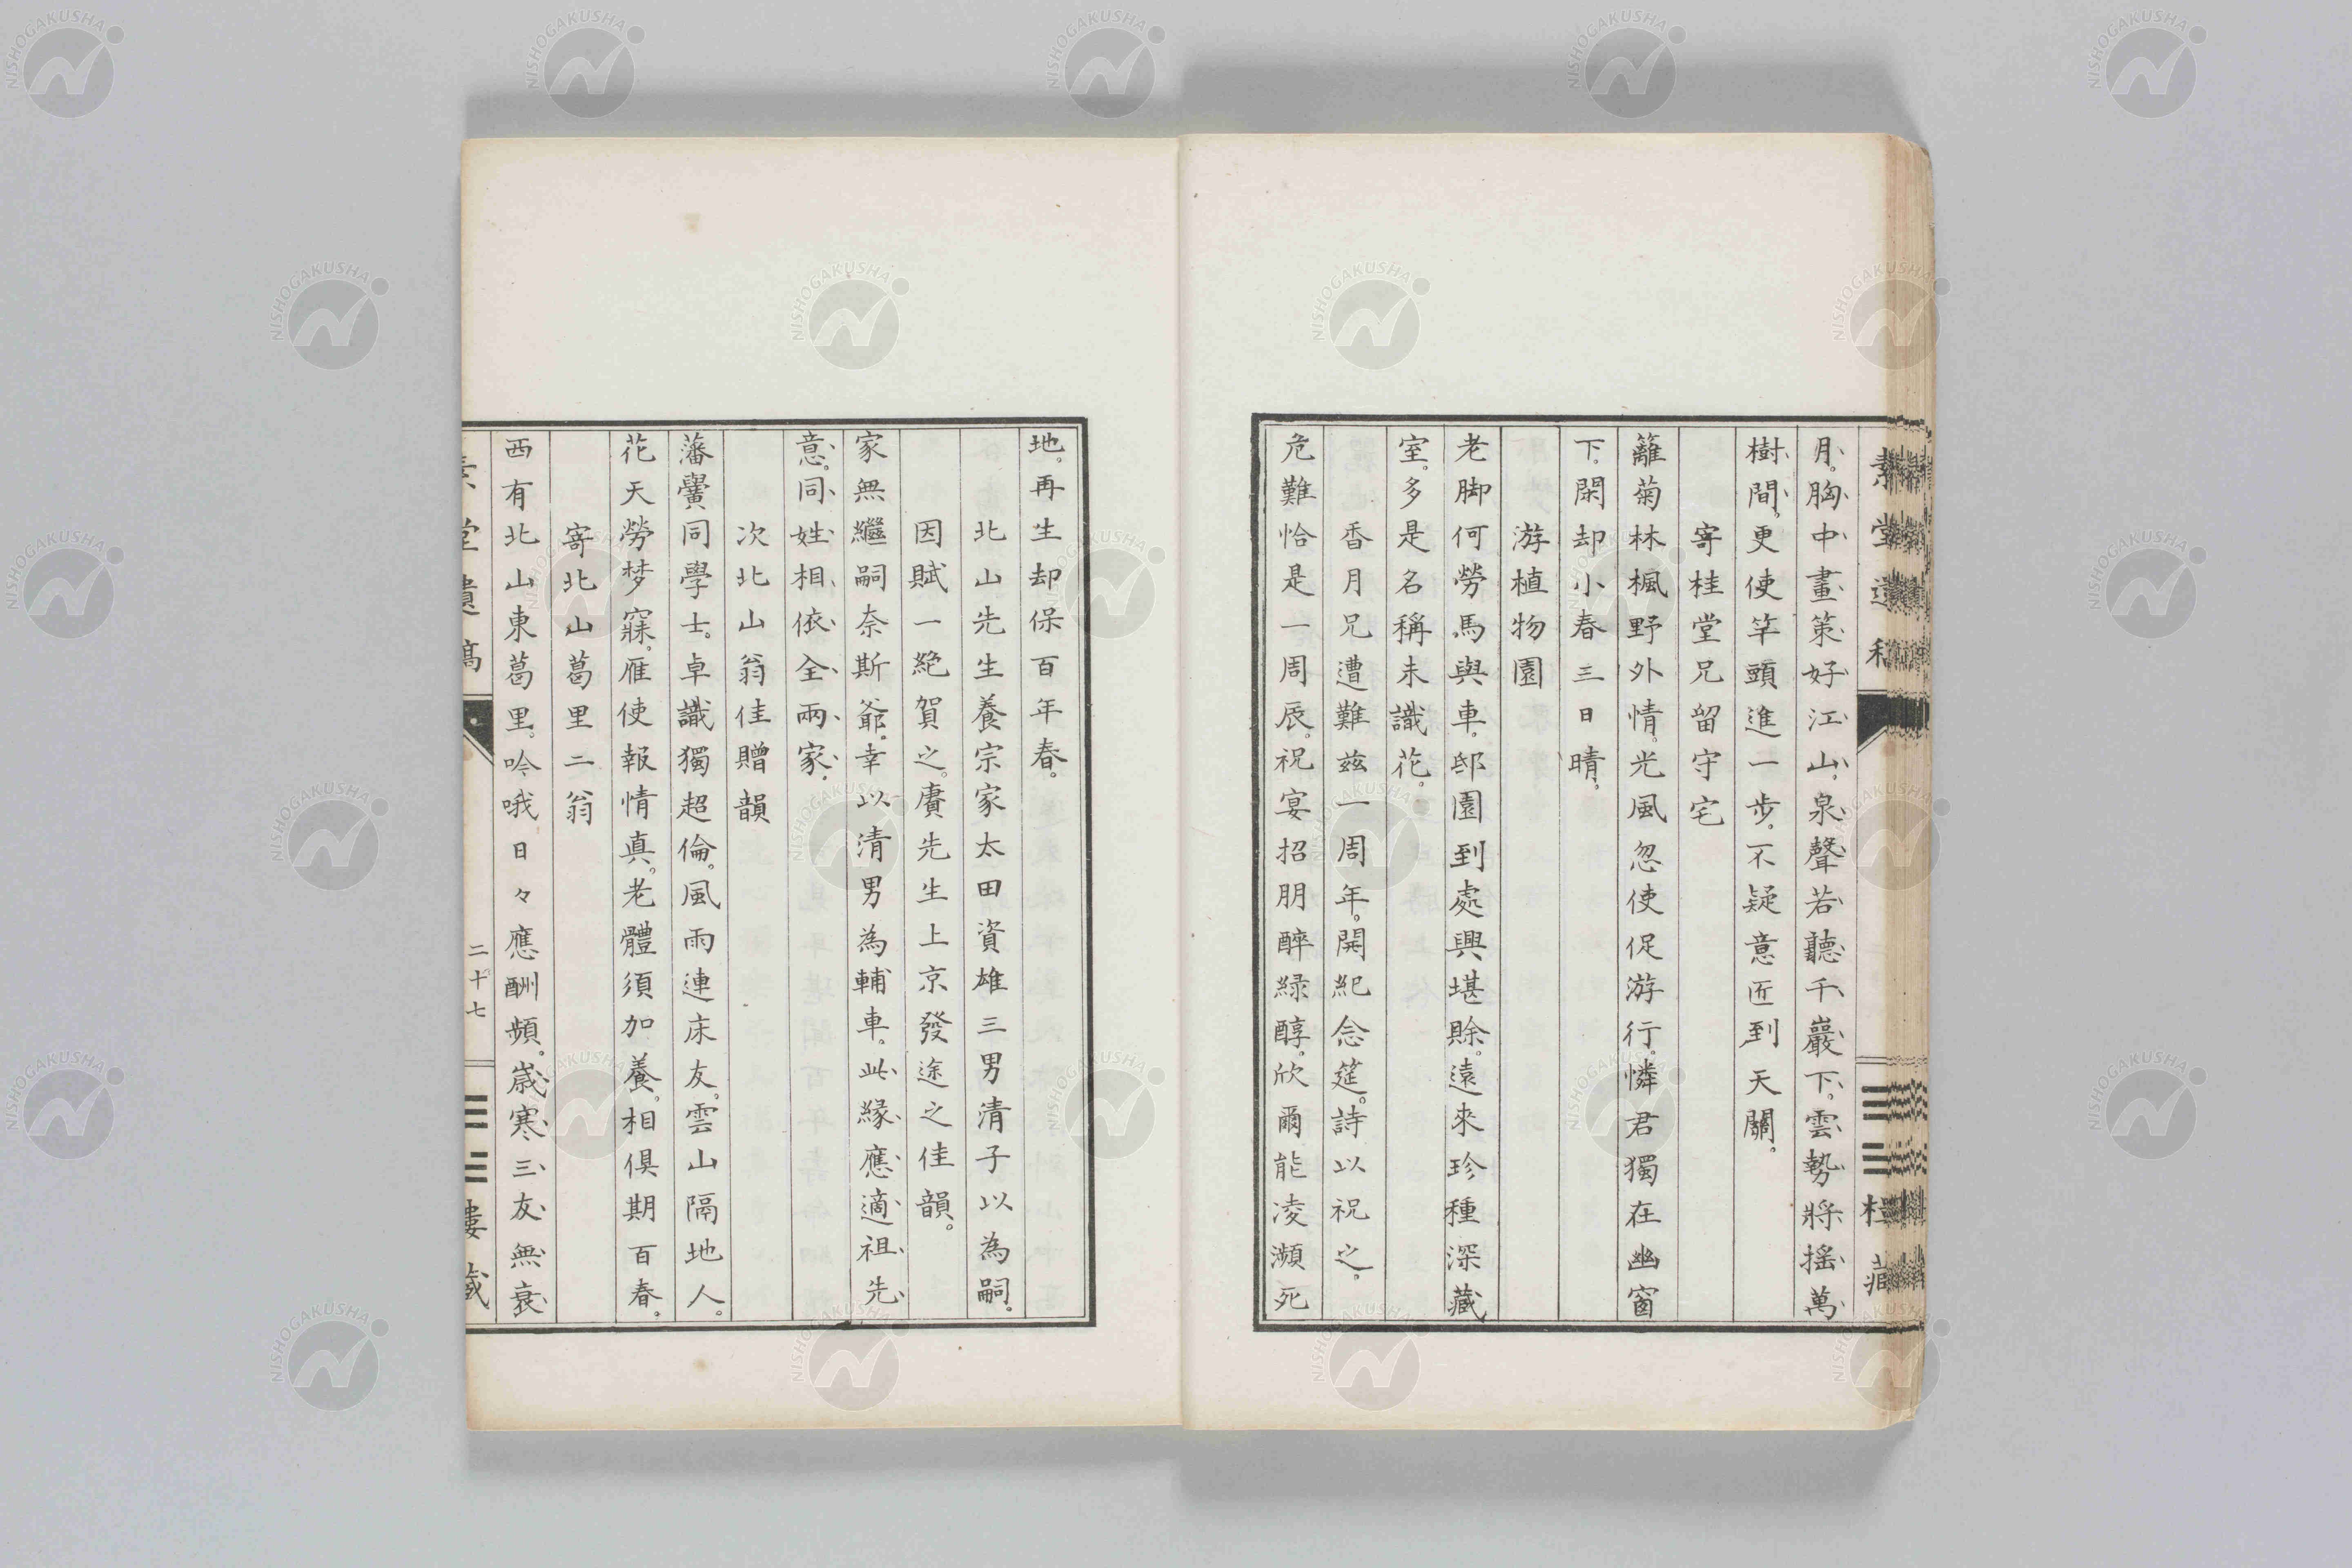 月。胸中畫策好江山。泉聲若聽千巖下。雲勢將搖萬
樹間。更使竿頭進一步。不疑意匠到天關。
寄桂堂兄留守宅
籬菊林楓野外情。光風忽使促游行。憐君獨在幽窗
下。閑却小春三日晴。
游植物園
老脚何勞馬與車。邸園到處興堪賖。遠來珍種深藏
室。多是名稱未識花。
香月兄遭難茲一周年。開紀念筵。詩以祝之。
危難恰是一周辰。祝宴招朋醉綠醇。欣爾能凌瀕死
地。再生却保百年春。
北山先生養宗家太田資雄三男清子以為嗣。
因賦一絕賀之。賡先生上京發途之佳韻。
家無繼嗣奈斯爺。幸以清男為輔車。此緣應適祖先
意。同姓相依全兩家。
次北山翁佳贈韻
藩黌同學士。卓識獨超倫。風雨連床友。雲山隔地人。
花天勞梦寐。雁使報情真。老體須加養。相俱期百春。
寄北山葛里二翁
西有北山東葛里。吟哦日々應酬頻。歲寒三友無衰
素堂遺稿
二十七
樓藏
NISHOGAKUSHA